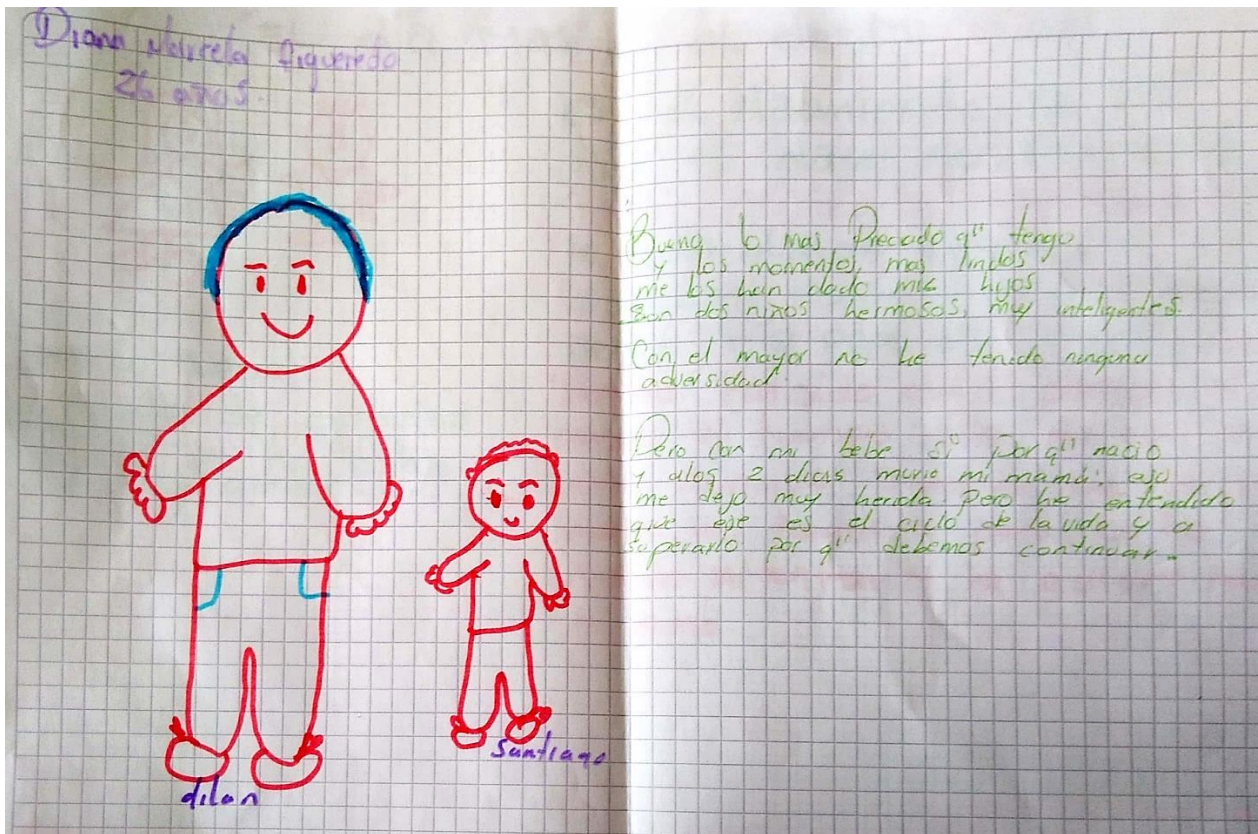 Diana Marcela Sigueredo
26 años.
dilan
Santiago
Bueno lo mas Preciado q" tengo
y los momentos mas lindos
me los han dado mis hijos
son dos niños hermosos, muy inteligentes.
Con el mayor no he tenido ninguna
adversidad
Pero con mi bebe si por q" nacio
y alos 2 dias murio mi mamá. eso
me dejo muy herida Pero he entendido
que ese es el ciclo de la vida y a
superarlo por q" debemos continuar.